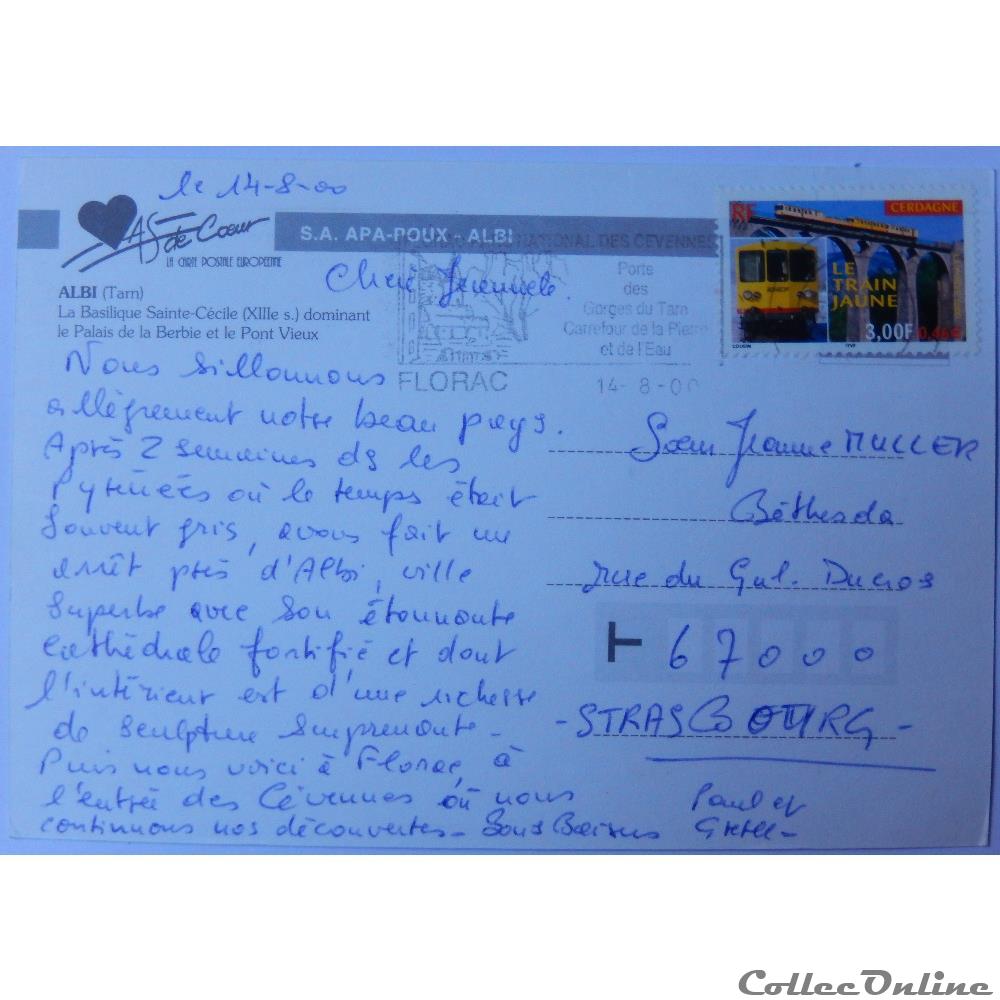 le 14-8-00
AS de Cœur
LA CARTE POSTALE EUROPEENNE
S.A. APA-POUX - ALBI
ALBI (Tarn)
La Basilique Sainte-Cécile (XIIIe s.) dominant
le Palais de la Berbie et le Pont Vieux
NATIONAL DES CEVENNES
Porte
des
Gorges du Tarn
Carrefour de la Pierre
et de l'Eau
FLORAC
14-8-00
RF
CERDAGNE
LE
TRAIN
JAUNE
3,00F 0,46€
Chère
Nous sillonnons
allègrement notre beau pays.
Après 2 semaines ds les
Pyrénées où le temps était
souvent gris, avons fait un
arrêt près d'Albi, ville
superbe avec son étonnante
cathédrale fortifié et dont
l'intérieur est d'une richesse
de sculpture surprenante -
Puis nous voici à Florac, à
l'entrée des Cévennes où nous
continuons nos découvertes - Bons Baisers
Paul et
Sœur Jeanne MULLER
Béthesda
rue du Gal. Ducros
67000
- STRASBOURG -
CollecOnline